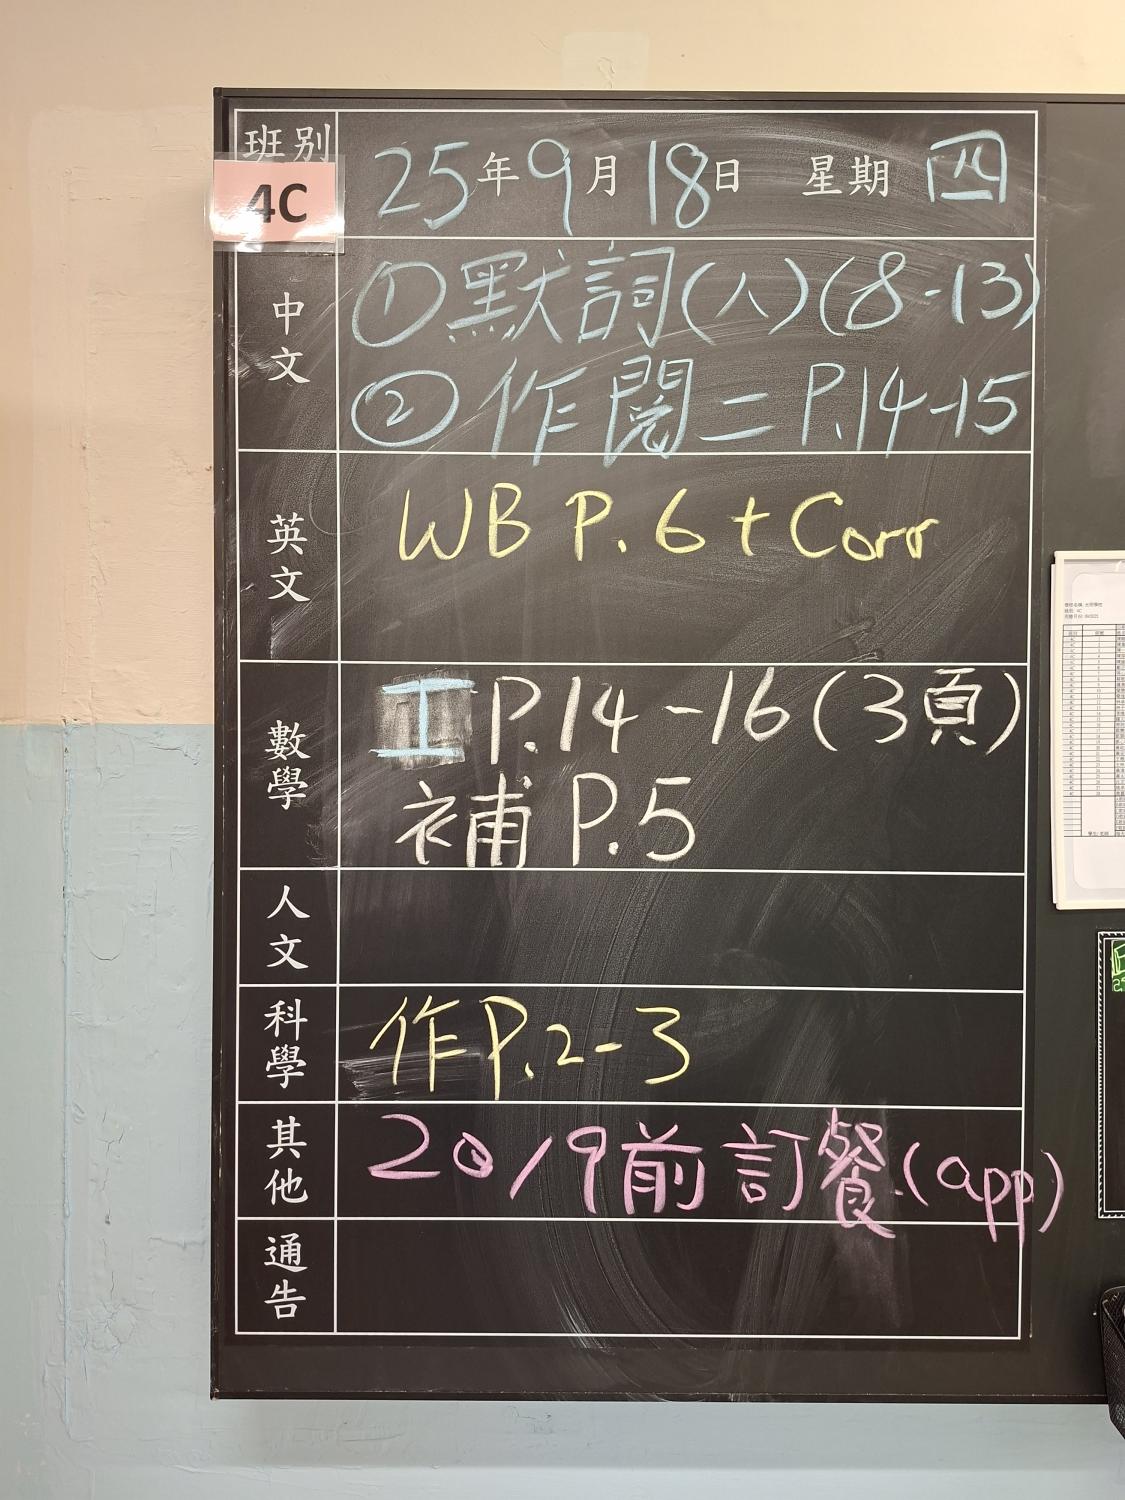 班別 25年9月18日 星期四
4C
中文 ①默詞(八)(8-13)
②作閱二 P.14-15
英文 WB P.6 + Corr
數學 工 P.14-16(3頁)
補 P.5
人文
科學 作P.2-3
其他 20/9前訂餐(app)
通告